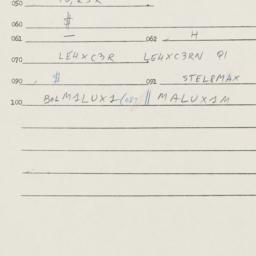 050
060 $
061 — 062 H
070 LE4XC3R LE4XC3RN Q1
090 $ 091 STELPMAX
100 BOLM1LUX1 (027) || MALUX1M